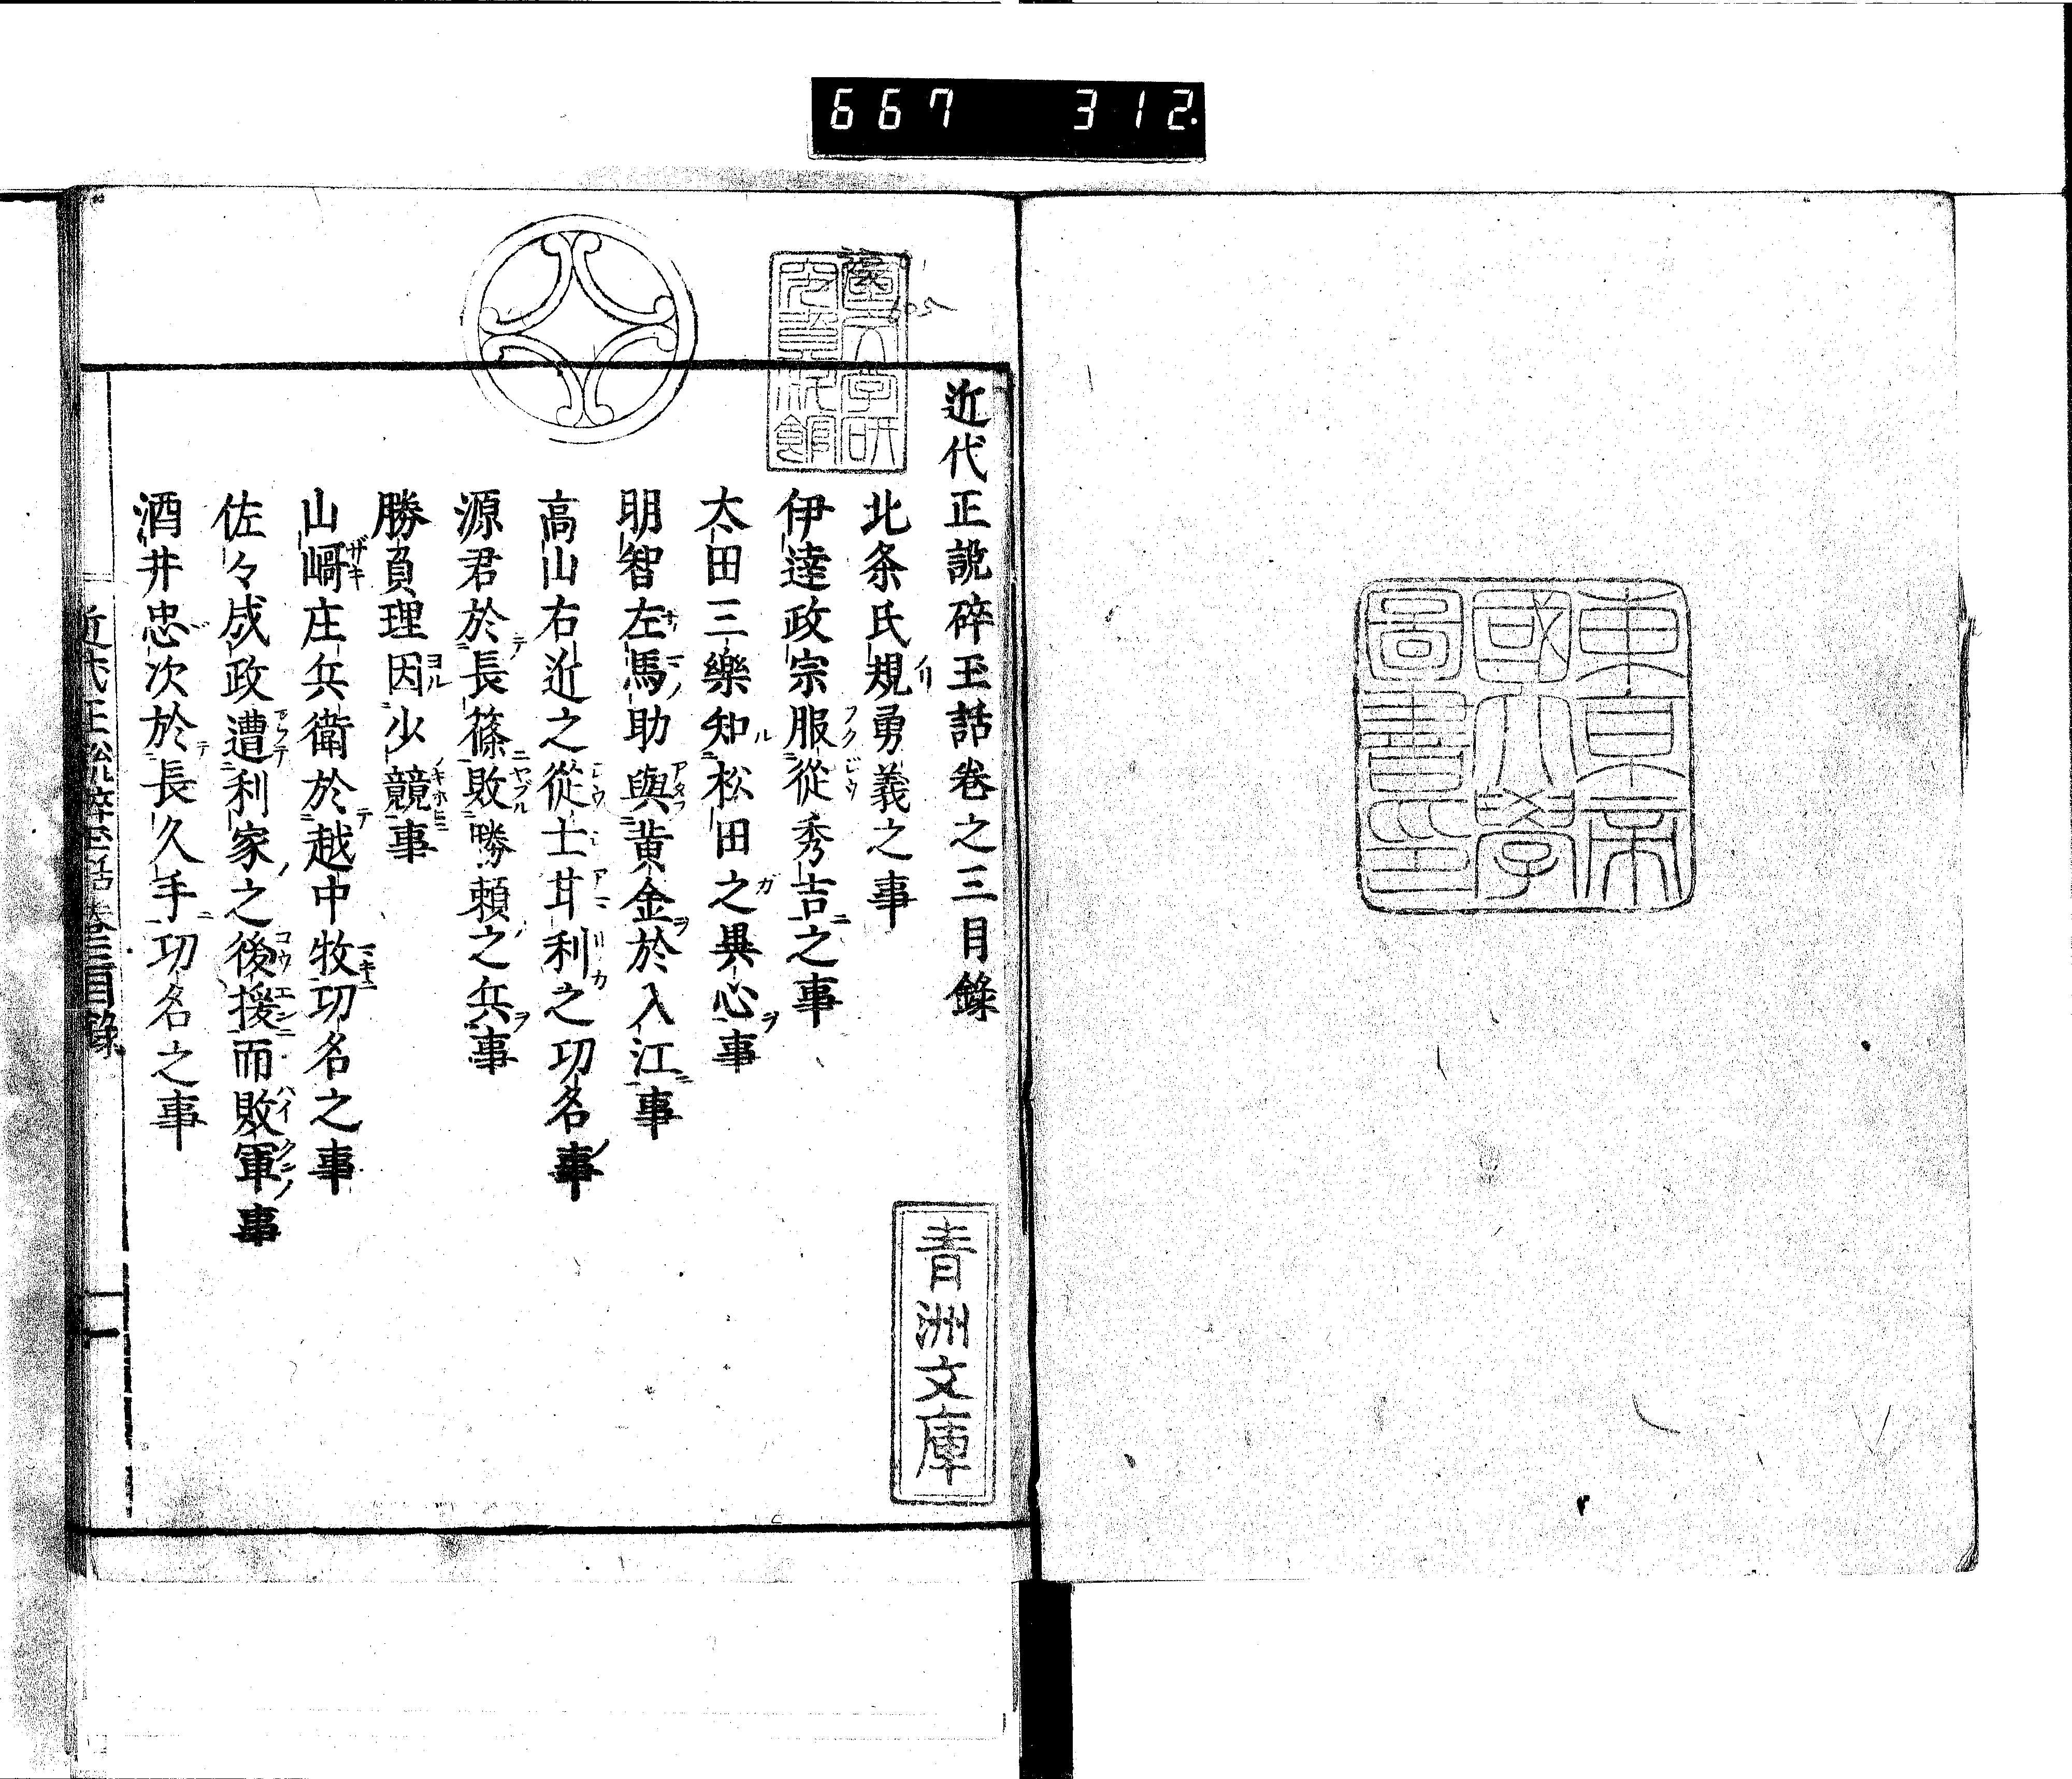 667 312.
東京帝
國大學
圖書印
近代正説碎玉話卷之三目錄
北条氏規勇義之事
伊達政宗服從秀吉之事
太田三樂知松田之異心事
明智左馬助與黄金於入江事
高山右近之從士甘利之功名事
源君於長篠敗勝頼之兵事
勝負理因少競事
山﨑庄兵衛於越中牧功名之事
佐々成政遭利家之後援而敗軍事
酒井忠次於長久手功名之事
近代正説碎玉話卷三目錄
一
青洲文庫